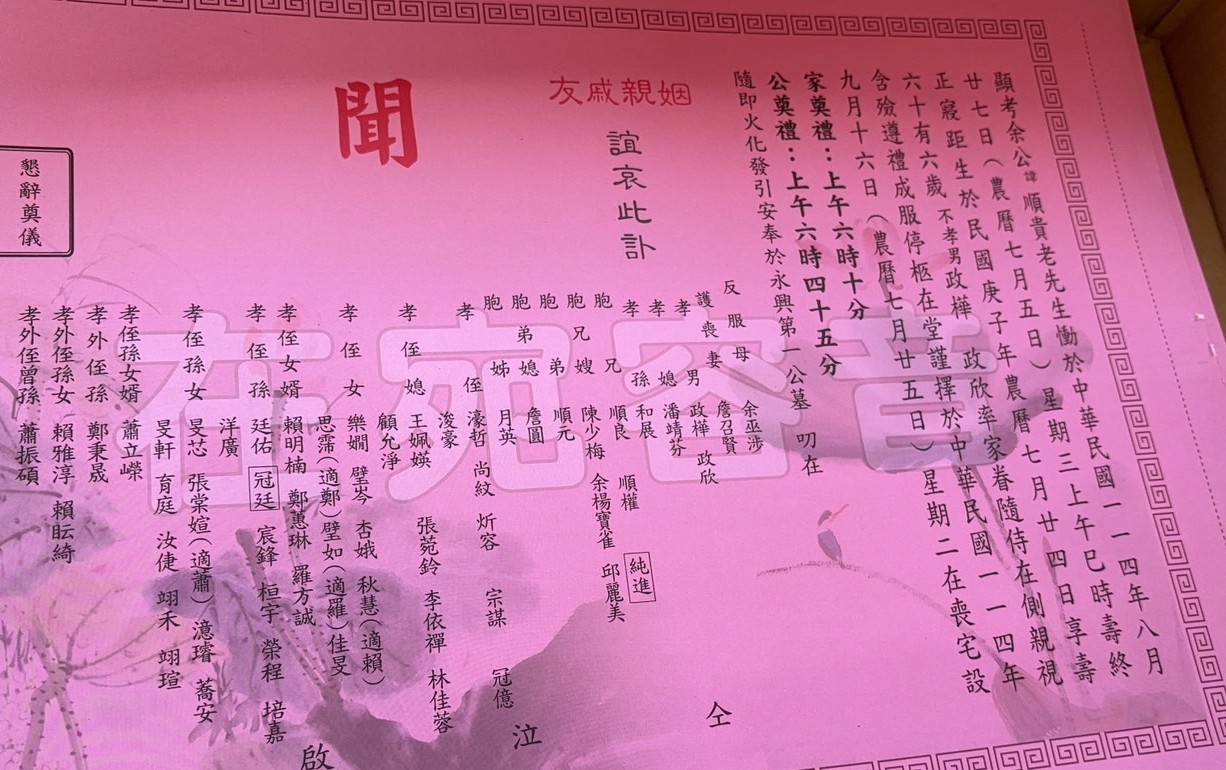 顯考余公諱順貴老先生慟於中華民國一一四年八月
廿七日(農曆七月五日)星期三上午巳時壽終
正寢距生於民國庚子年農曆七月廿四日享壽
六十有六歲不孝男政樺 政欣率家眷隨侍在側親視
含殮遵禮成服停柩在堂謹擇於中華民國一一四年
九月十六日(農曆七月廿五日)星期二在喪宅設
家奠禮:上午六時十分
公奠禮:上午六時四十五分
隨即火化發引安奉於永興第一公墓 叨在
姻親戚友
誼哀此訃
聞
反服母 余巫涉
護喪妻 詹召賢
孝男 政樺 政欣
孝媳 潘靖芬
孝孫 和展
胞兄 順良 順權 純進
胞兄嫂 陳少梅 余楊寶雀 邱麗美
胞弟 順元
胞弟媳 詹圓
胞姊 月英
孝侄 濠哲 尚紋 炘容 宗謀 冠億
浚豪
孝侄媳 王姵媖 張菀鈴 李依禪 林佳蓉
顧允淨
孝侄女 樂嫺 壁岑 杏娥 秋慧(適賴)
思霈(適鄭)壁如(適羅)佳旻
孝侄女婿 賴明楠 鄭蕙琳 羅方誠
孝侄孫 廷佑 冠廷 宸鋒 桓宇 榮程 培嘉
洋廣
孝侄孫女 旻芯 張棠媗(適蕭)澺璿 蕎安
旻軒 育庭 汝倢 翊禾 翊瑄
孝侄孫女婿 蕭立嶸
孝外侄孫 鄭秉晟
孝外侄孫女 賴雅淳 賴眃綺
孝外侄曾孫 蕭振碩
仝
泣
啟
懇辭奠儀
在宛容音